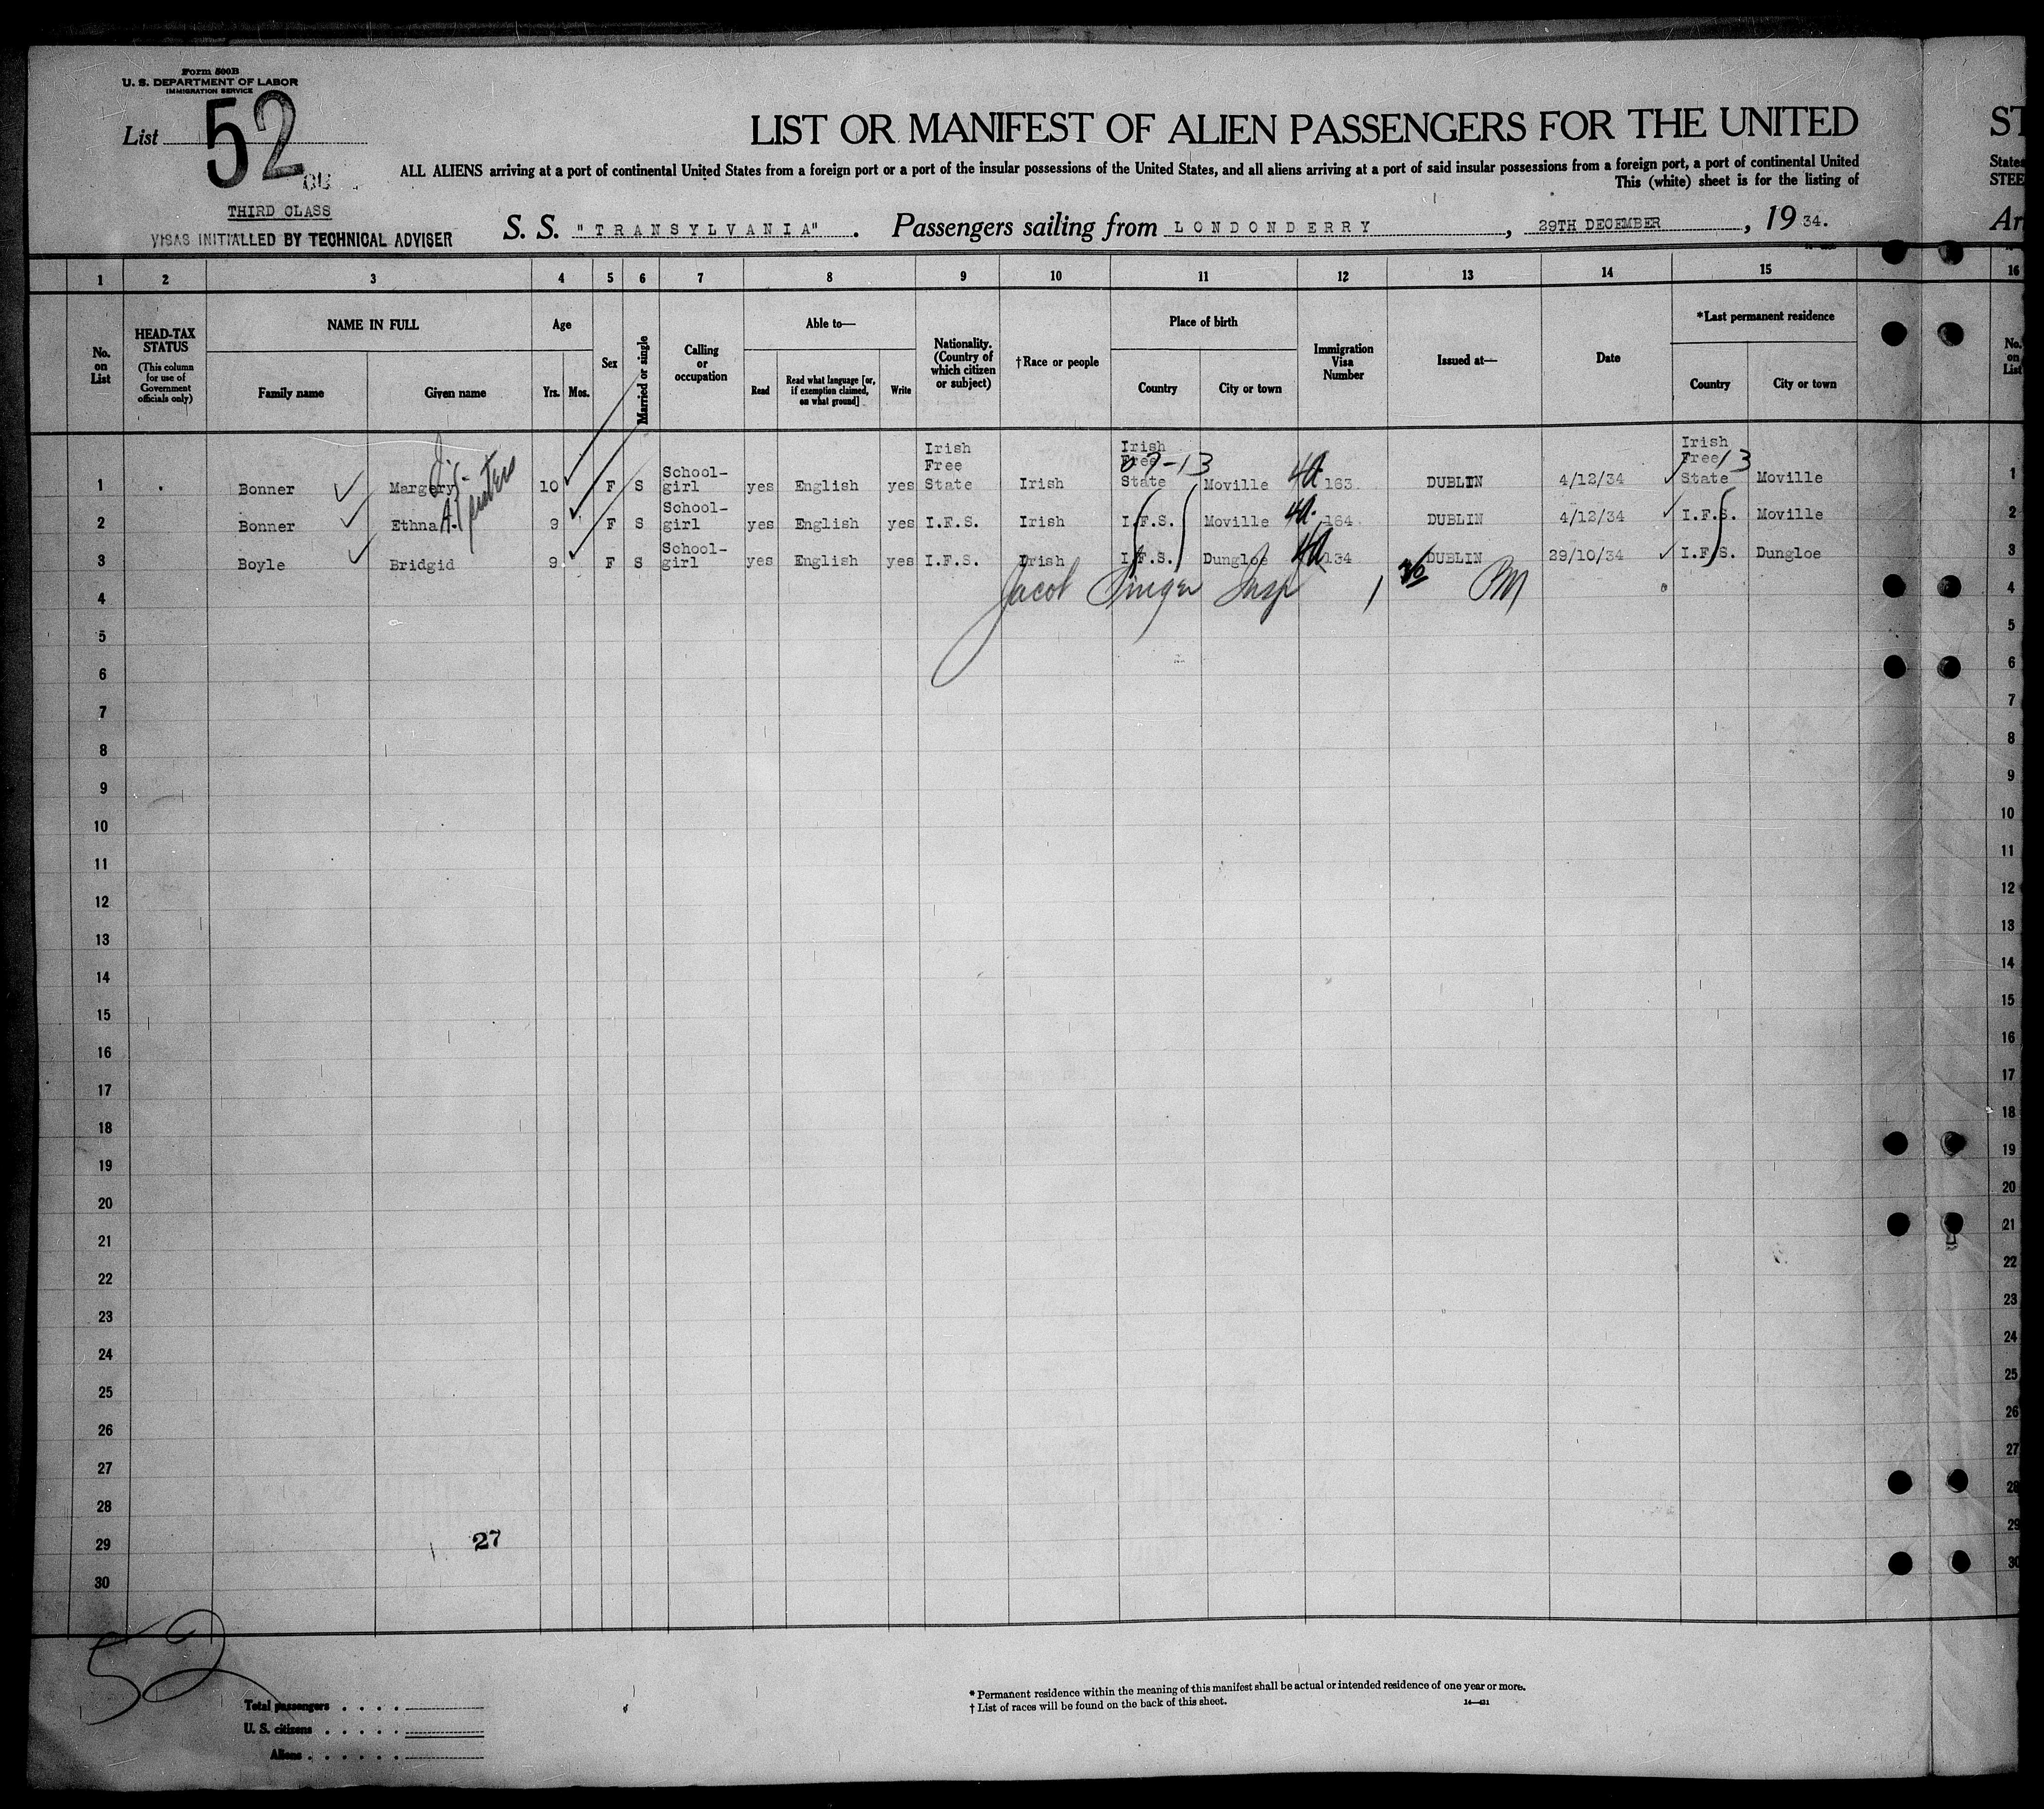 Form 500B
U. S. DEPARTMENT OF LABOR
IMMIGRATION SERVICE
List 52
THIRD CLASS
VISAS INITIALLED BY TECHNICAL ADVISER
LIST OR MANIFEST OF ALIEN PASSENGERS FOR THE UNITED
ALL ALIENS arriving at a port of continental United States from a foreign port or a port of the insular possessions of the United States, and all aliens arriving at a port of said insular possessions from a foreign port, a port of continental United
This (white) sheet is for the listing of
S. S. "TRANSYLVANIA". Passengers sailing from LONDONDERRY, 29TH DECEMBER, 1934.
ST
States
STEE
Ar
1 2 3 4 5 6 7 8 9 10 11 12 13 14 15 16
No. on List
HEAD-TAX STATUS
(This column for use of Government officials only)
NAME IN FULL
Family name Given name
Age
Yrs. Mos.
Sex
Married or single
Calling or occupation
Able to—
Read
Read what language [or, if exemption claimed, on what ground]
Write
Nationality. (Country of which citizen or subject)
†Race or people
Place of birth
Country City or town
Immigration Visa Number
Issued at—
Date
*Last permanent residence
Country City or town
No. on List
1 Bonner Margery 10 F S School-girl yes English yes Irish Free State Irish Irish Free State 07-13 Moville 4A 163 DUBLIN 4/12/34 Irish Free State 13 Moville 1
2 Bonner Ethna A. 9 F S School-girl yes English yes I.F.S. Irish I.F.S. Moville 4A 164 DUBLIN 4/12/34 I.F.S. Moville 2
3 Boyle Bridgid 9 F S School-girl yes English yes I.F.S. Irish I.F.S. Dungloe 4A 134 DUBLIN 29/10/34 I.F.S. Dungloe 3
Jacob Singer Insp
4 4
5 5
6 6
7 7
8 8
9 9
10 10
11 11
12 12
13 13
14 14
15 15
16 16
17 17
18 18
19 19
20 20
21 21
22 22
23 23
24 24
25 25
26 26
27 27
28 28
29 27 29
30 30
52
Total passengers
U. S. citizens
Aliens
* Permanent residence within the meaning of this manifest shall be actual or intended residence of one year or more.
† List of races will be found on the back of this sheet.
14—431